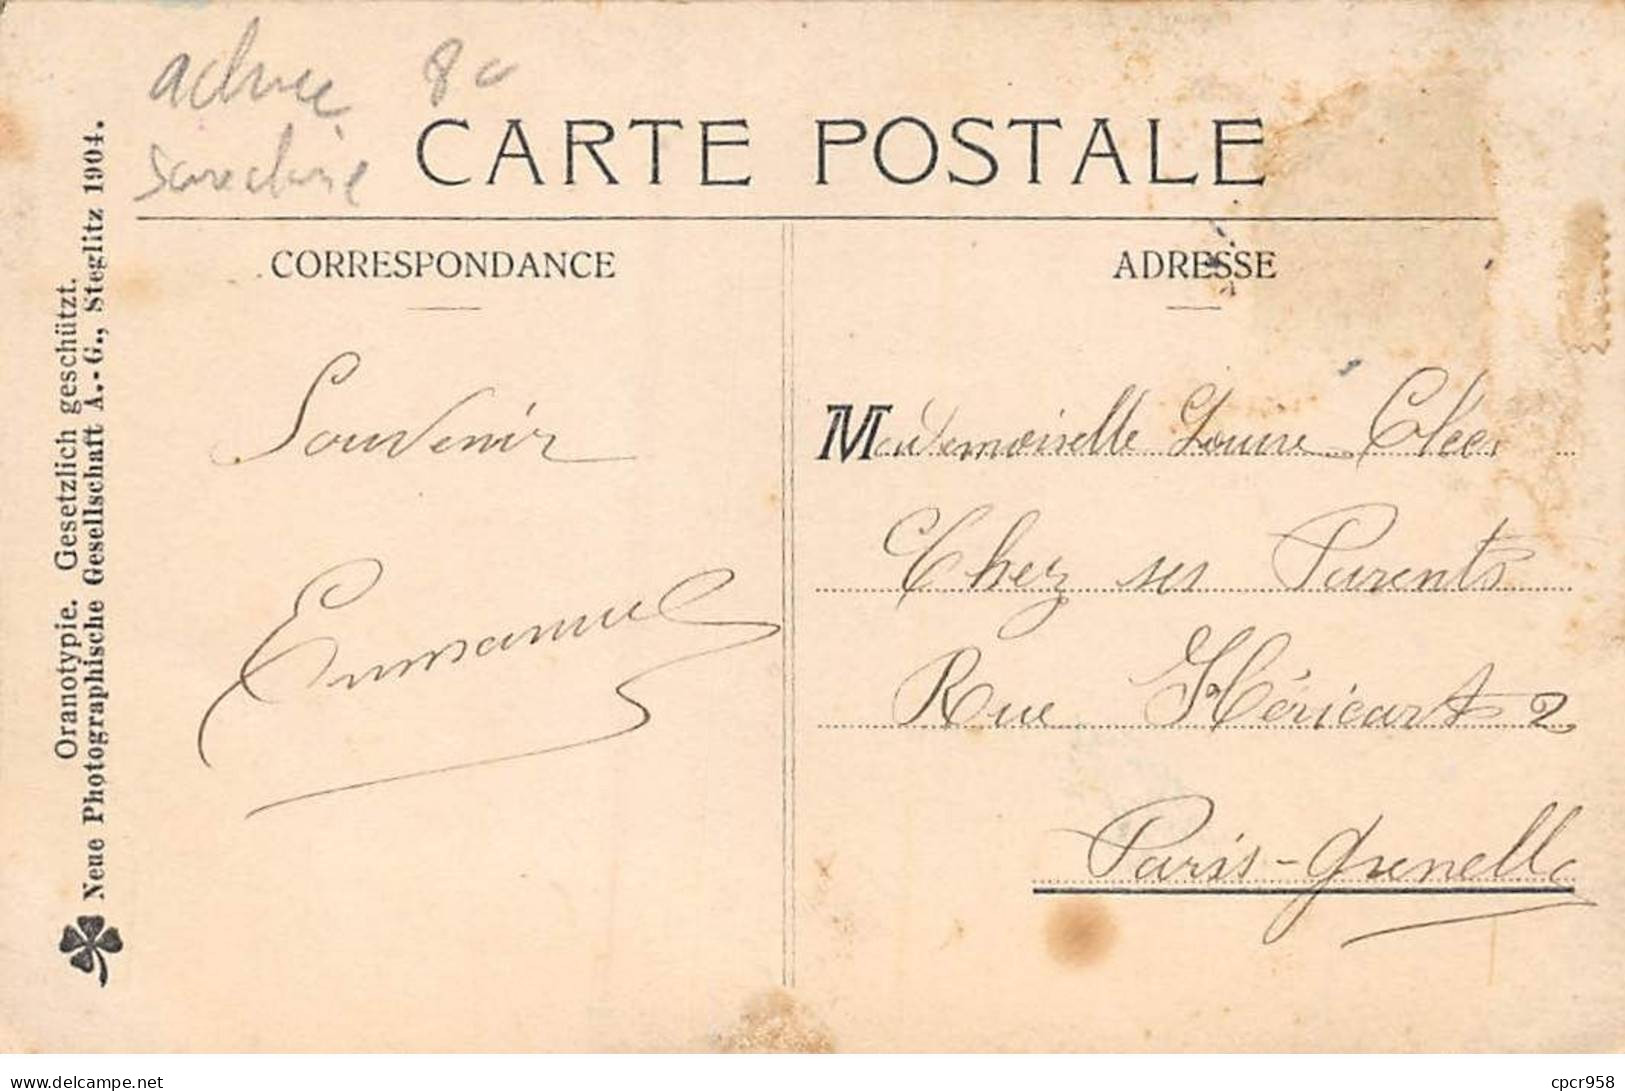 CARTE POSTALE
CORRESPONDANCE
ADRESSE
Oranotypie. Gesetzlich geschützt.
Neue Photographische Gesellschaft A.-G., Steglitz 1904.
Souvenir
Emmanuel
Mademoiselle Louise
Chez ses Parents
Rue Héricart 2
Paris-Grenelle
delcampe.net
cpcr958